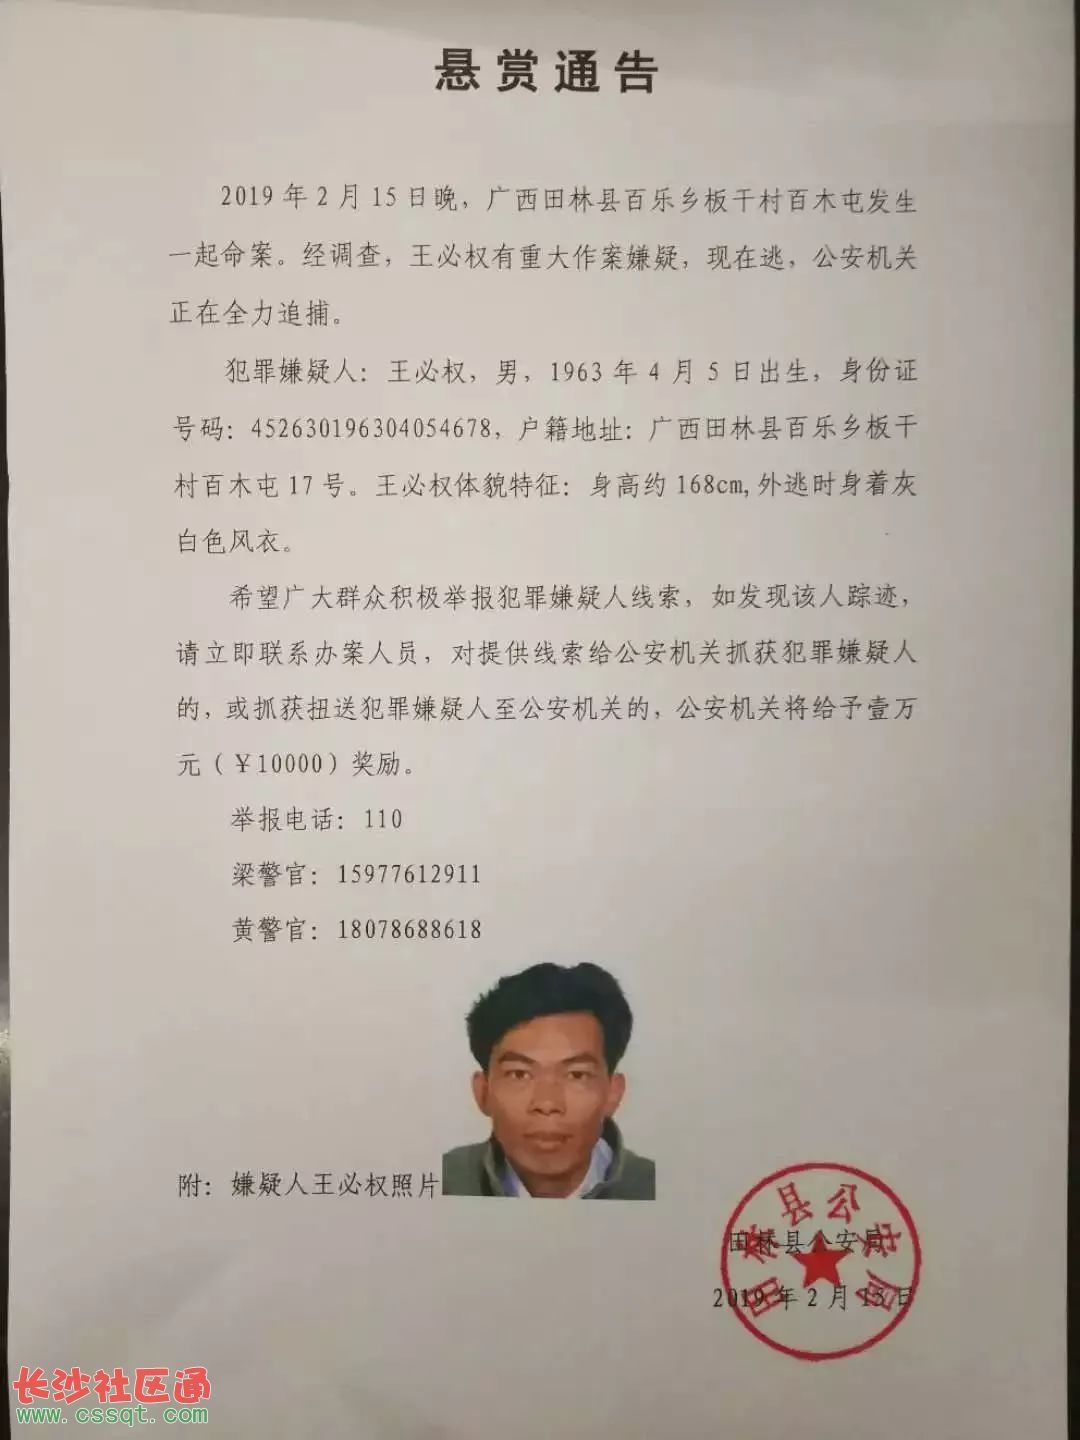 悬赏通告
2019 年 2 月 15 日晚，广西田林县百乐乡板干村百木屯发生
一起命案。经调查，王必权有重大作案嫌疑，现在逃，公安机关
正在全力追捕。
犯罪嫌疑人：王必权，男，1963 年 4 月 5 日出生，身份证
号码：452630196304054678，户籍地址：广西田林县百乐乡板干
村百木屯 17 号。王必权体貌特征：身高约 168cm,外逃时身着灰
白色风衣。
希望广大群众积极举报犯罪嫌疑人线索，如发现该人踪迹，
请立即联系办案人员，对提供线索给公安机关抓获犯罪嫌疑人
的，或抓获扭送犯罪嫌疑人至公安机关的，公安机关将给予壹万
元（￥10000）奖励。
举报电话：110
梁警官：15977612911
黄警官：18078688618
附：嫌疑人王必权照片
田林县公安局
田林县公安局
2019 年 2 月 15 日
长沙社区通
www.cssqt.com